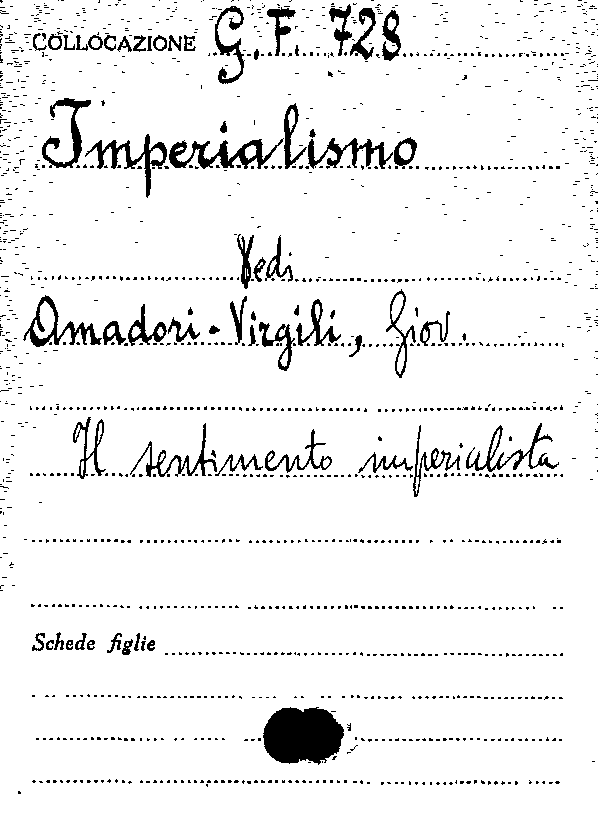 COLLOCAZIONE G.F. 728
Imperialismo
Vedi
Amadori-Virgili, Giov.
Il sentimento imperialista
Schede figlie